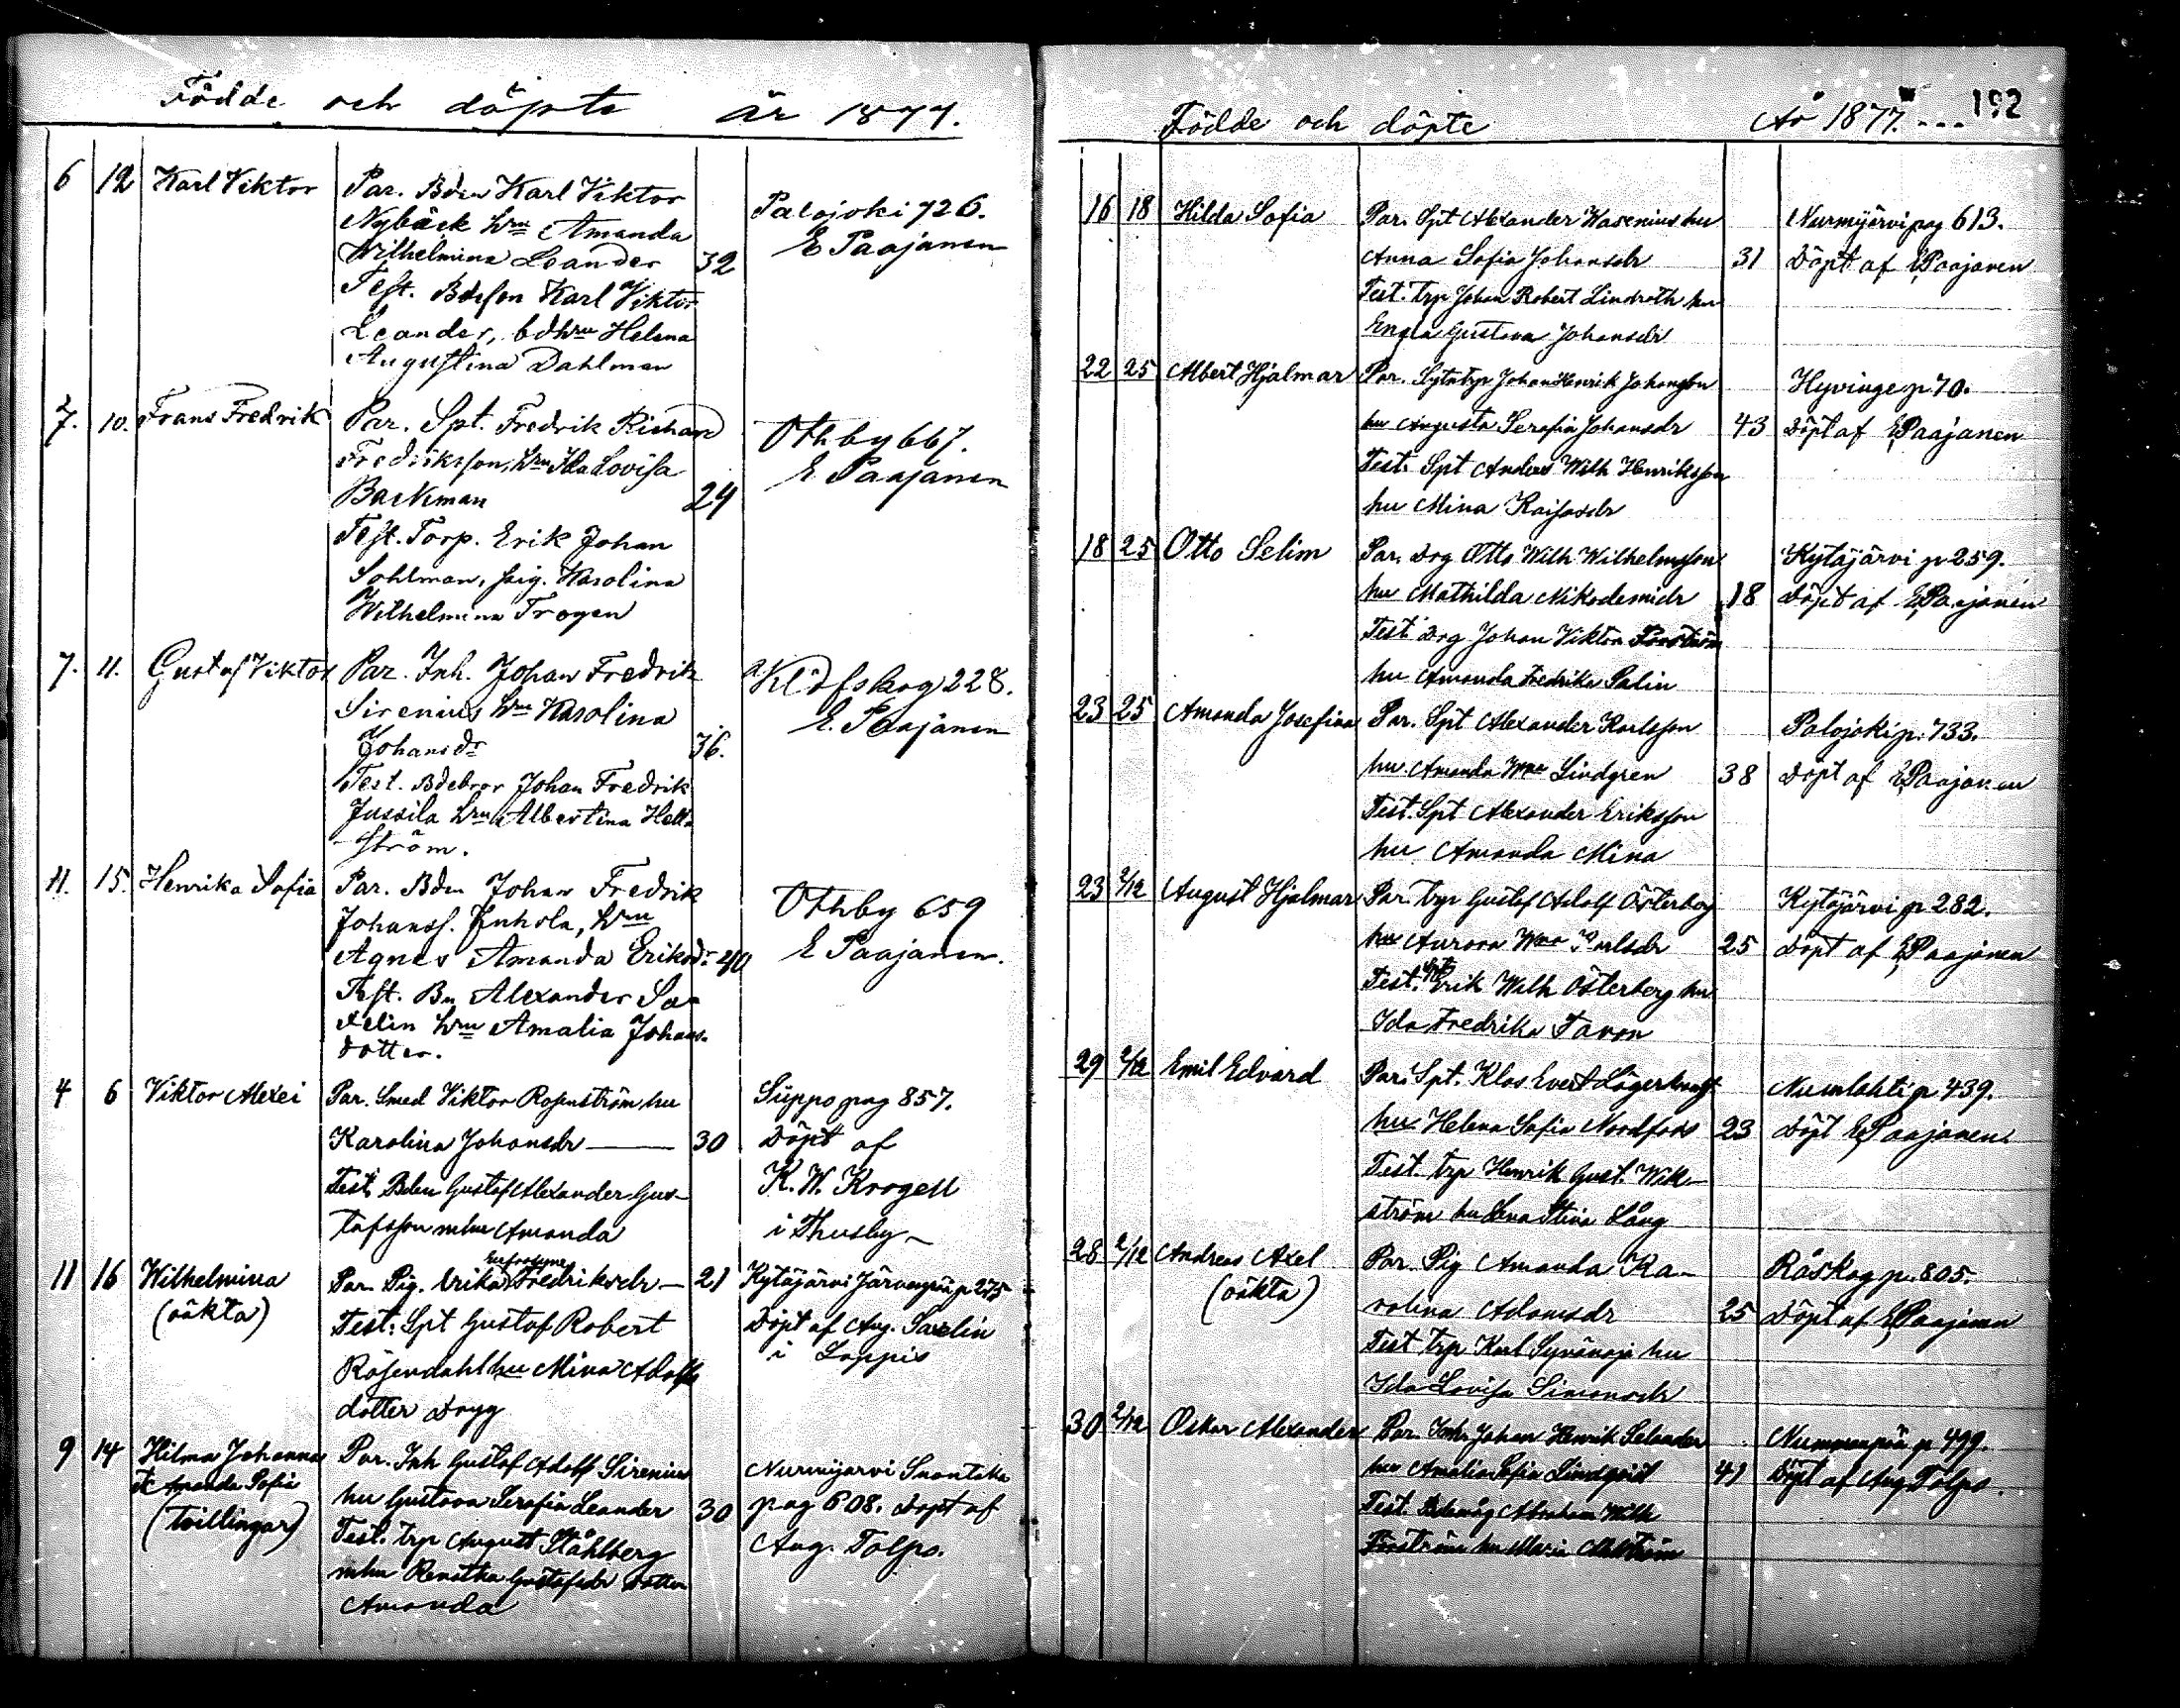 Födde och döpte år 1877.
6 12 Karl Viktor Par. Bdn Karl Viktor
Nybäck hru Amanda Palojoki 726.
Wilhelmina Leander 32 E Paajanen
Test. Bdeson Karl Viktor
Leander, bdhru Helena
Augustina Dahlman
7. 10. Frans Fredrik Par. Spt. Fredrik Richard Othby 667.
Fredriksson, hru Ida Lovisa E Paajanen
Backman 24
Test. Torp. Erik Johan
Sohlman, pig. Karolina
Wilhelmina Trogen
7. 11. Gustaf Viktor Par. Inh. Johan Fredrik Klöfskog 228.
Sirenius hru Karolina E. Paajanen
Johansdr 36.
Test. Bdebror Johan Fredrik
Jussila hru Albertina Hell-
ström.
11. 15. Henrika Sofia Par. Bdn Johan Fredrik Othby 659
Johanss. Inhola, hru
Agnes Amanda Eriksdr 40 E Paajanen.
Test. Bn Alexander Sa-
xelin hru Amalia Johans-
dotter.
4 6 Viktor Alexei Par. Smed Viktor Rosenström hu Suppo pag 857.
Karolina Johansdr 30 Döpt af
Test. Bden Gustaf Alexander Gus- K. W. Krogell
tafsson mhu Amanda i Thusby
11 16 Wilhelmina Par. Pig. Erika Eufrosyne Fredriksdr 21 Kytäjärvi Järvenpää p 275
(oäkta) Test: Spt Gustaf Robert Döpt af Aug. Saxelin
Rosendahl hu Mina Adolfs i Loppis
dotter
9 14 Hilma Johanna Par. Inh Gustaf Adolf Sirenius Nurmijärvi
et Amanda Sofia hu Gustava Serafia Leander 30 pag 608. Döpt af
(tvillingar) Test. trp August Ståhlberg Aug. Tolpo.
mhu Renatha Gustafsdr dotter
Amanda
Födde och döpte År 1877. 192
16 18 Hilda Sofia Par. Spt Alexander Wasenius hu Nurmijärvi pag 613.
Anna Sofia Johansdr 31 Döpt af E Paajanen
Test. trp Johan Robert Lindroth hu
Engla Gustava Johansdr
22 25 Albert Hjalmar Par. Sytntrp Johan Henrik Johansson Hyvinge p 70.
hu Augusta Serafia Johansdr 43 Döpt af E Paajanen
Test. Spt Anders Wilh Henriksson
hu Mina Kaisasdr
18 25 Otto Selim Par. Drg Otto Wilh Wilhelmsson Kytäjärvi p 259.
hu Mathilda Nikodemidr 18 Döpt af E Paajanen
Test Drg Johan Viktor Forström
hu Amanda Fredrika Salin
23 25 Amanda Josefina Par. Spt Alexander Karlsson Palojoki p. 733.
hu Amanda Wma Lindgren 38 Döpt af E Paajanen
Test. Spt Alexander Eriksson
hu Amanda Mina
23 2/12 August Hjalmar Par. trp Gustaf Adolf Österberg Kytäjärvi p 282.
hu Aurora Wma Karlsdr 25 Döpt af E Paajanen
Test. Spt Erik Wilh Österberg hu
Ida Fredrika Tavon
29 2/12 Emil Edvard Par. Spt. Klas Evert Lagerkrantz Numlahti p 439.
hu Helena Sofia Nordfors 23 Döpt E Paajanen
Test. trp Henrik Gust. Wik-
ström hu Lena Stina Lång
28 2/12 Andreas Axel Par. Pig Amanda Ka- Råskog p. 805.
(oäkta) rolina Adamsdr 25 Döpt af E Paajanen
Test trp Karl Syvänoja hu
Ida Lovisa Simonsdr
30 2/12 Oskar Alexander Par. Inh. Johan Henrik Selander Nummenpää p 499.
hu Amalia Sofia Lindqvist 41 Döpt af Aug Tolpo.
Test. Bdemåg Abraham Wilh
Forström hu Maria Ahlström